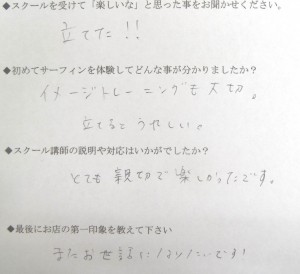 ◆スクールを受けて「楽しいな」と思った事をお聞かせください。
立てた!!
◆初めてサーフィンを体験してどんな事が分かりましたか？
イメージトレーニングも大切。
立てるとうれしい。
◆スクール講師の説明や対応はいかがでしたか？
とても親切で楽しかったです。
◆最後にお店の第一印象を教えて下さい
またお世話になりたいです!